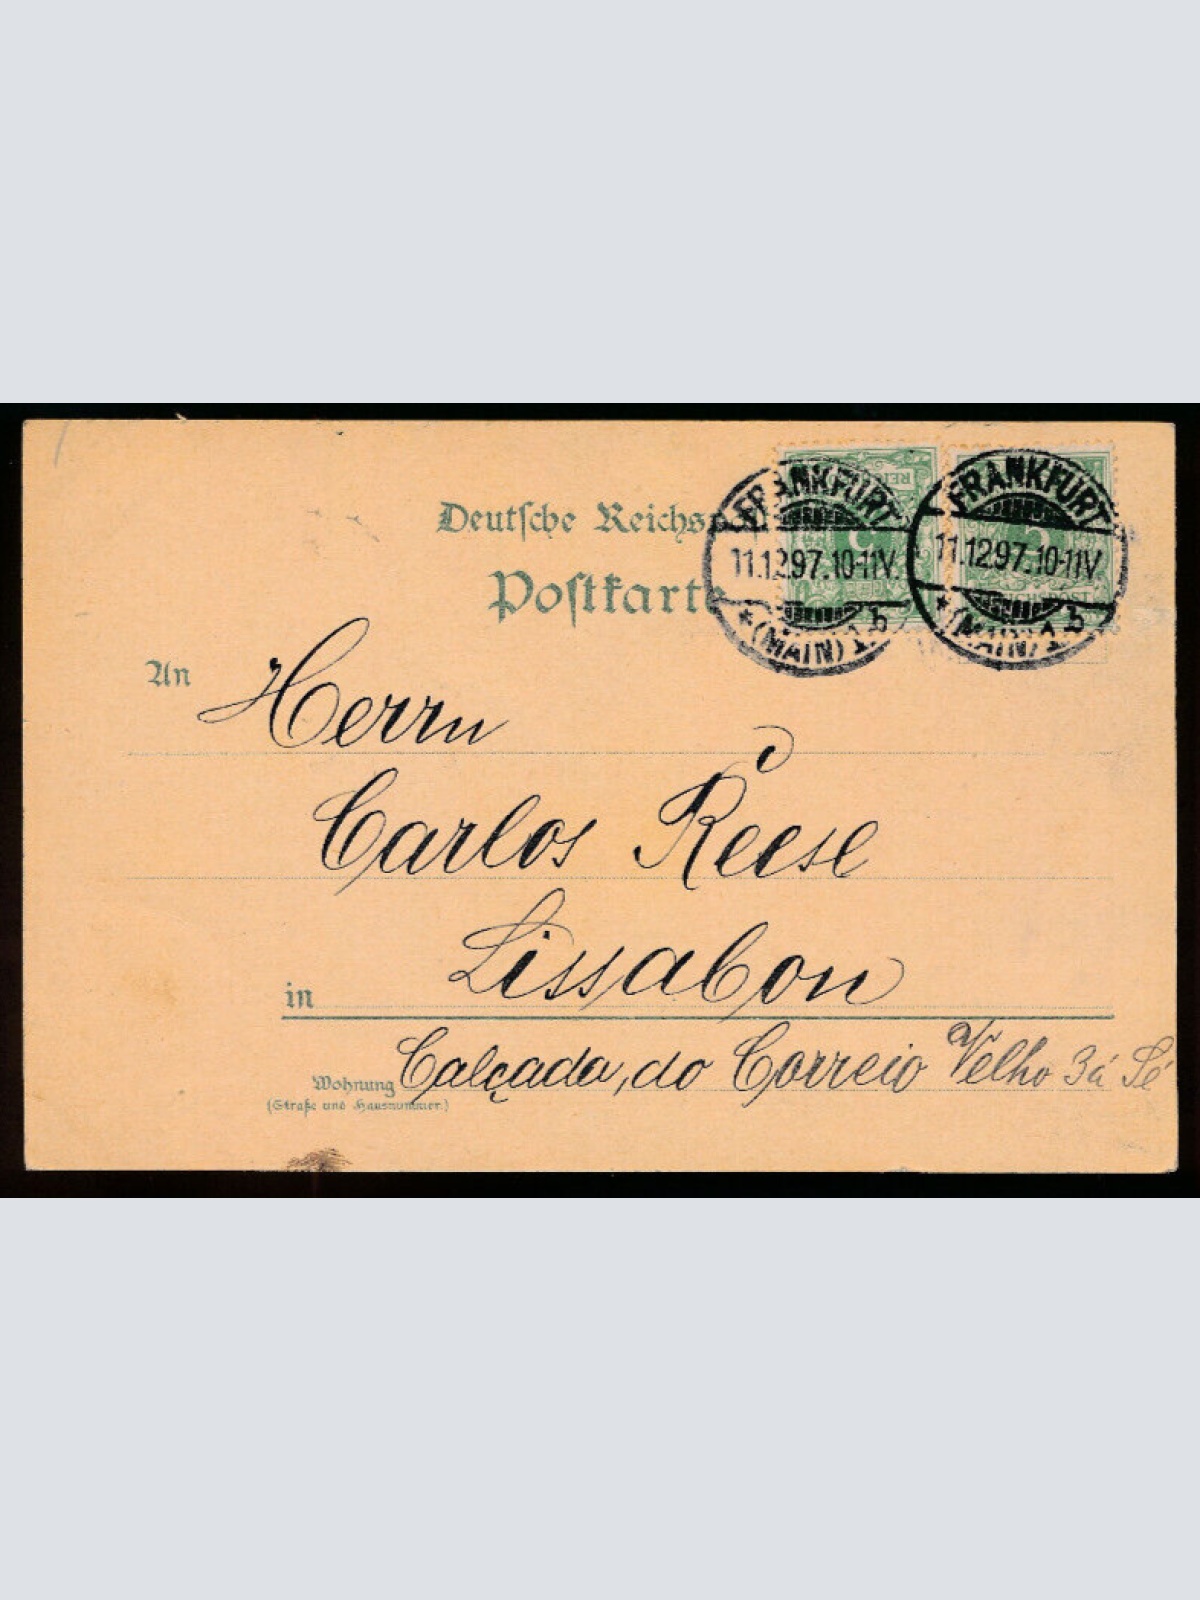 Deutsche Reichspost
Postkarte
FRANKFURT
11.12.97.10-11V.
* (MAIN) 1. b
FRANKFURT
11.12.97.10-11V
* (MAIN) 1. b
REICHSPOST
5
5
An Herrn
Carlos Reese
in Lissabon
Wohnung Calçada, do Correio Velho 3á Sé
(Straße und Hausnummer.)